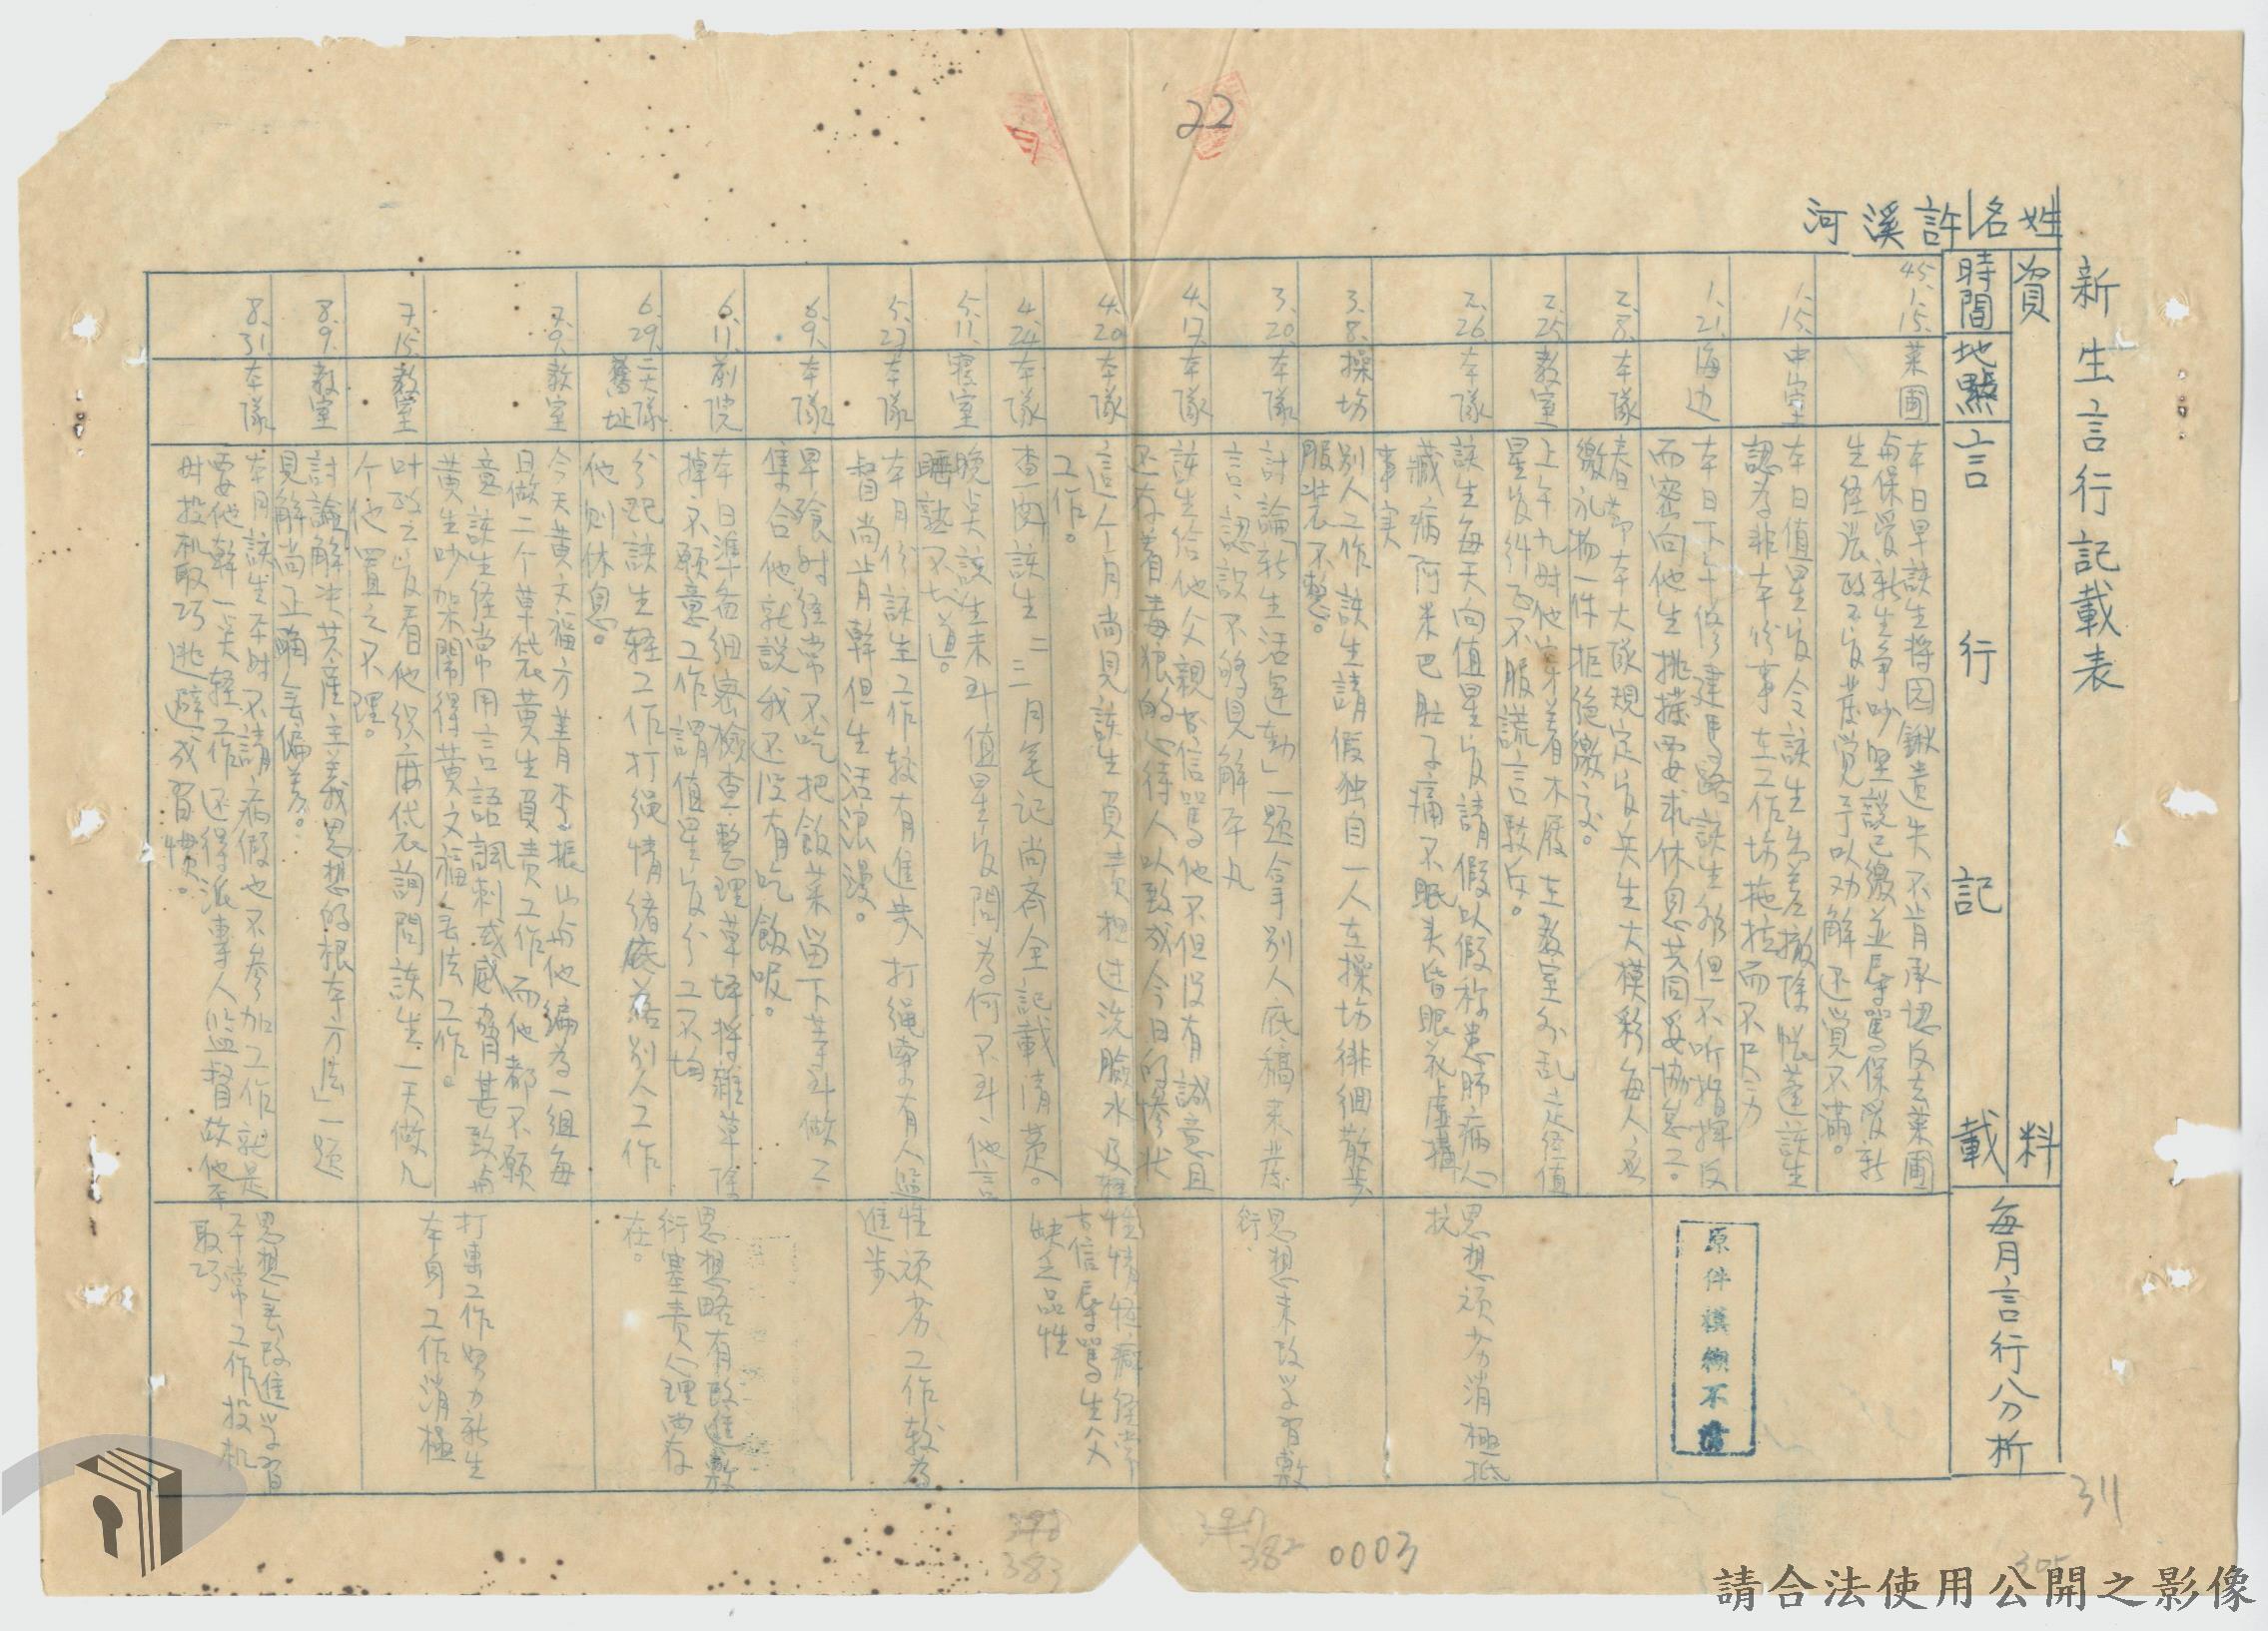 新生言行記載表
姓名
許溪河
資料
時間
地點
言行記載
每月言行分析
45.1.15.
菜圃
本日早該生將因鍬遺失不肯承認反去菜圃
與保受新生爭吵堅說已繳並辱罵保受新
予以劝解还覚不滿。
1.15.
中室
本日值星官令該生
撤除帐蓬該生
認為非本份事在工作場拖拉而不尽力
1.21.
海边
本日下午修建馬路該生
不但不听指揮反
而密向他生挑撥要求休息共同妥協怠工。
2.8.
本隊
春節本大隊規定官兵生大模彩每人
繳礼物一件拒绝繳交。
2.25.
教室
上午九时他穿着木屐在教室外乱走经值
星官纠正不服謊言敷衍。
2.26.
本隊
該生每天向值星官請假以假称患肺病心
藏病阿米巴肚子痛不眠头昏眼花虛
事实
3.8.
操场
別人工作該生請假独自一人在操场徘徊散步
服装不整。
3.20.
本隊
討論「新生活運动」一題拿別人底稿来發
言、認識不够見解平凡
4.17.
本隊
該生给他父親的信罵他不但没有誠意且
还存着毒狠的心待人以致成今日的慘状
4.20.
本隊
這个月尚見該生負責担过洗臉水及轻
工作。
4.24.
本隊
查閱該生二三月笔记尚齐全記載清楚。
5.11.
寢室
晚点該生未到值星官問為何不到他言
睡熟不知道。
5.23.
本隊
本月份該生工作較有進步打绳索有人監
督尚肯幹但生活浪漫。
6.9.
本隊
早飱时经常不吃把飯菜留下等到做工
集合他就說我还没有吃飯呢。
6.11.
前院
本日準备细密檢查整理草坪將雜草除
掉不願意工作謂值星官分工不均
6.29.
二大隊
舊址
分配該生轻工作打绳情緒底落別人工作
他則休息。
7.9.
教室
今天黄文福方善月李振山与他編為一组每
日做二个草袋黄生負责工作而他都不願
意該生经常用言語諷刺或威脅甚致与
黄生吵架鬧得黄文福無法工作。
7.15.
教室
叶政之官看他织麻袋詢問該生一天做几
个他置之不理。
8.9.
教室
討論解决共産主義思想的根本方法」一题
見解尚正確無偏差。
8.31.
本隊
本月該生不时不請病假也不参加工作就是
要他幹一天轻工作还得派專人監督故他平
时投机取巧逃避成習慣。
思想頑劣消極抵
抗
思想未改学習敷
衍
性情怪癖经常
去信辱罵生父
缺乏品性
性頑劣工作較為
進步
思想略有改進敷
衍塞责心理尚存
在。
打裏工作努力新生
本身工作消極
思想無改進学習
不常工作投机
取巧
原件模糊不清
22
311
305
382
383
0003
請合法使用公開之影像